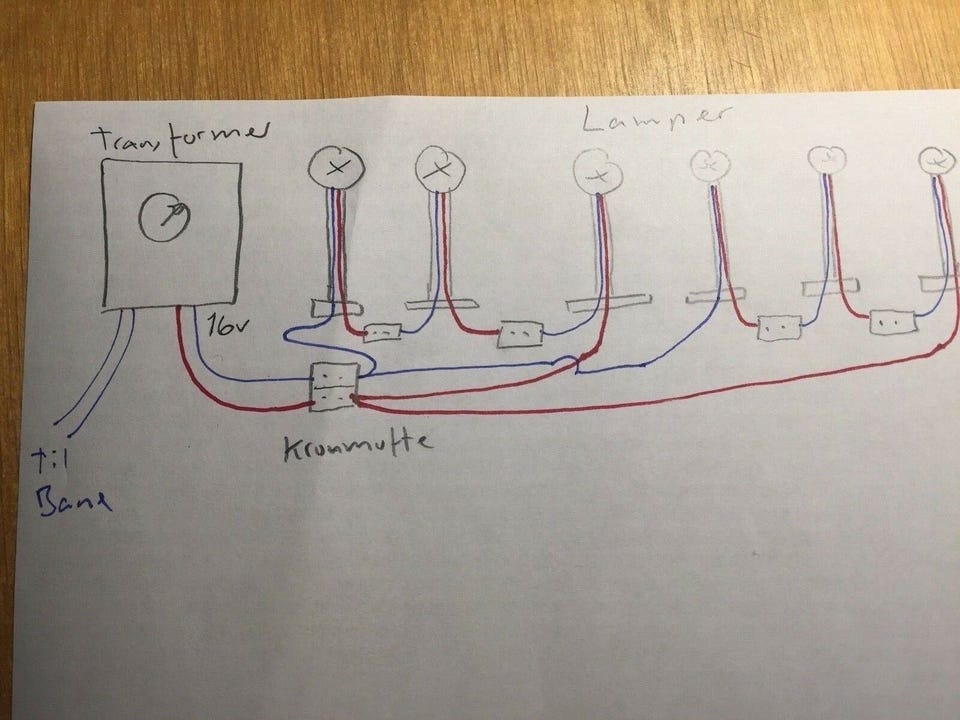 Transformer
Lamper
16v
Kronmuffe
til
Bane